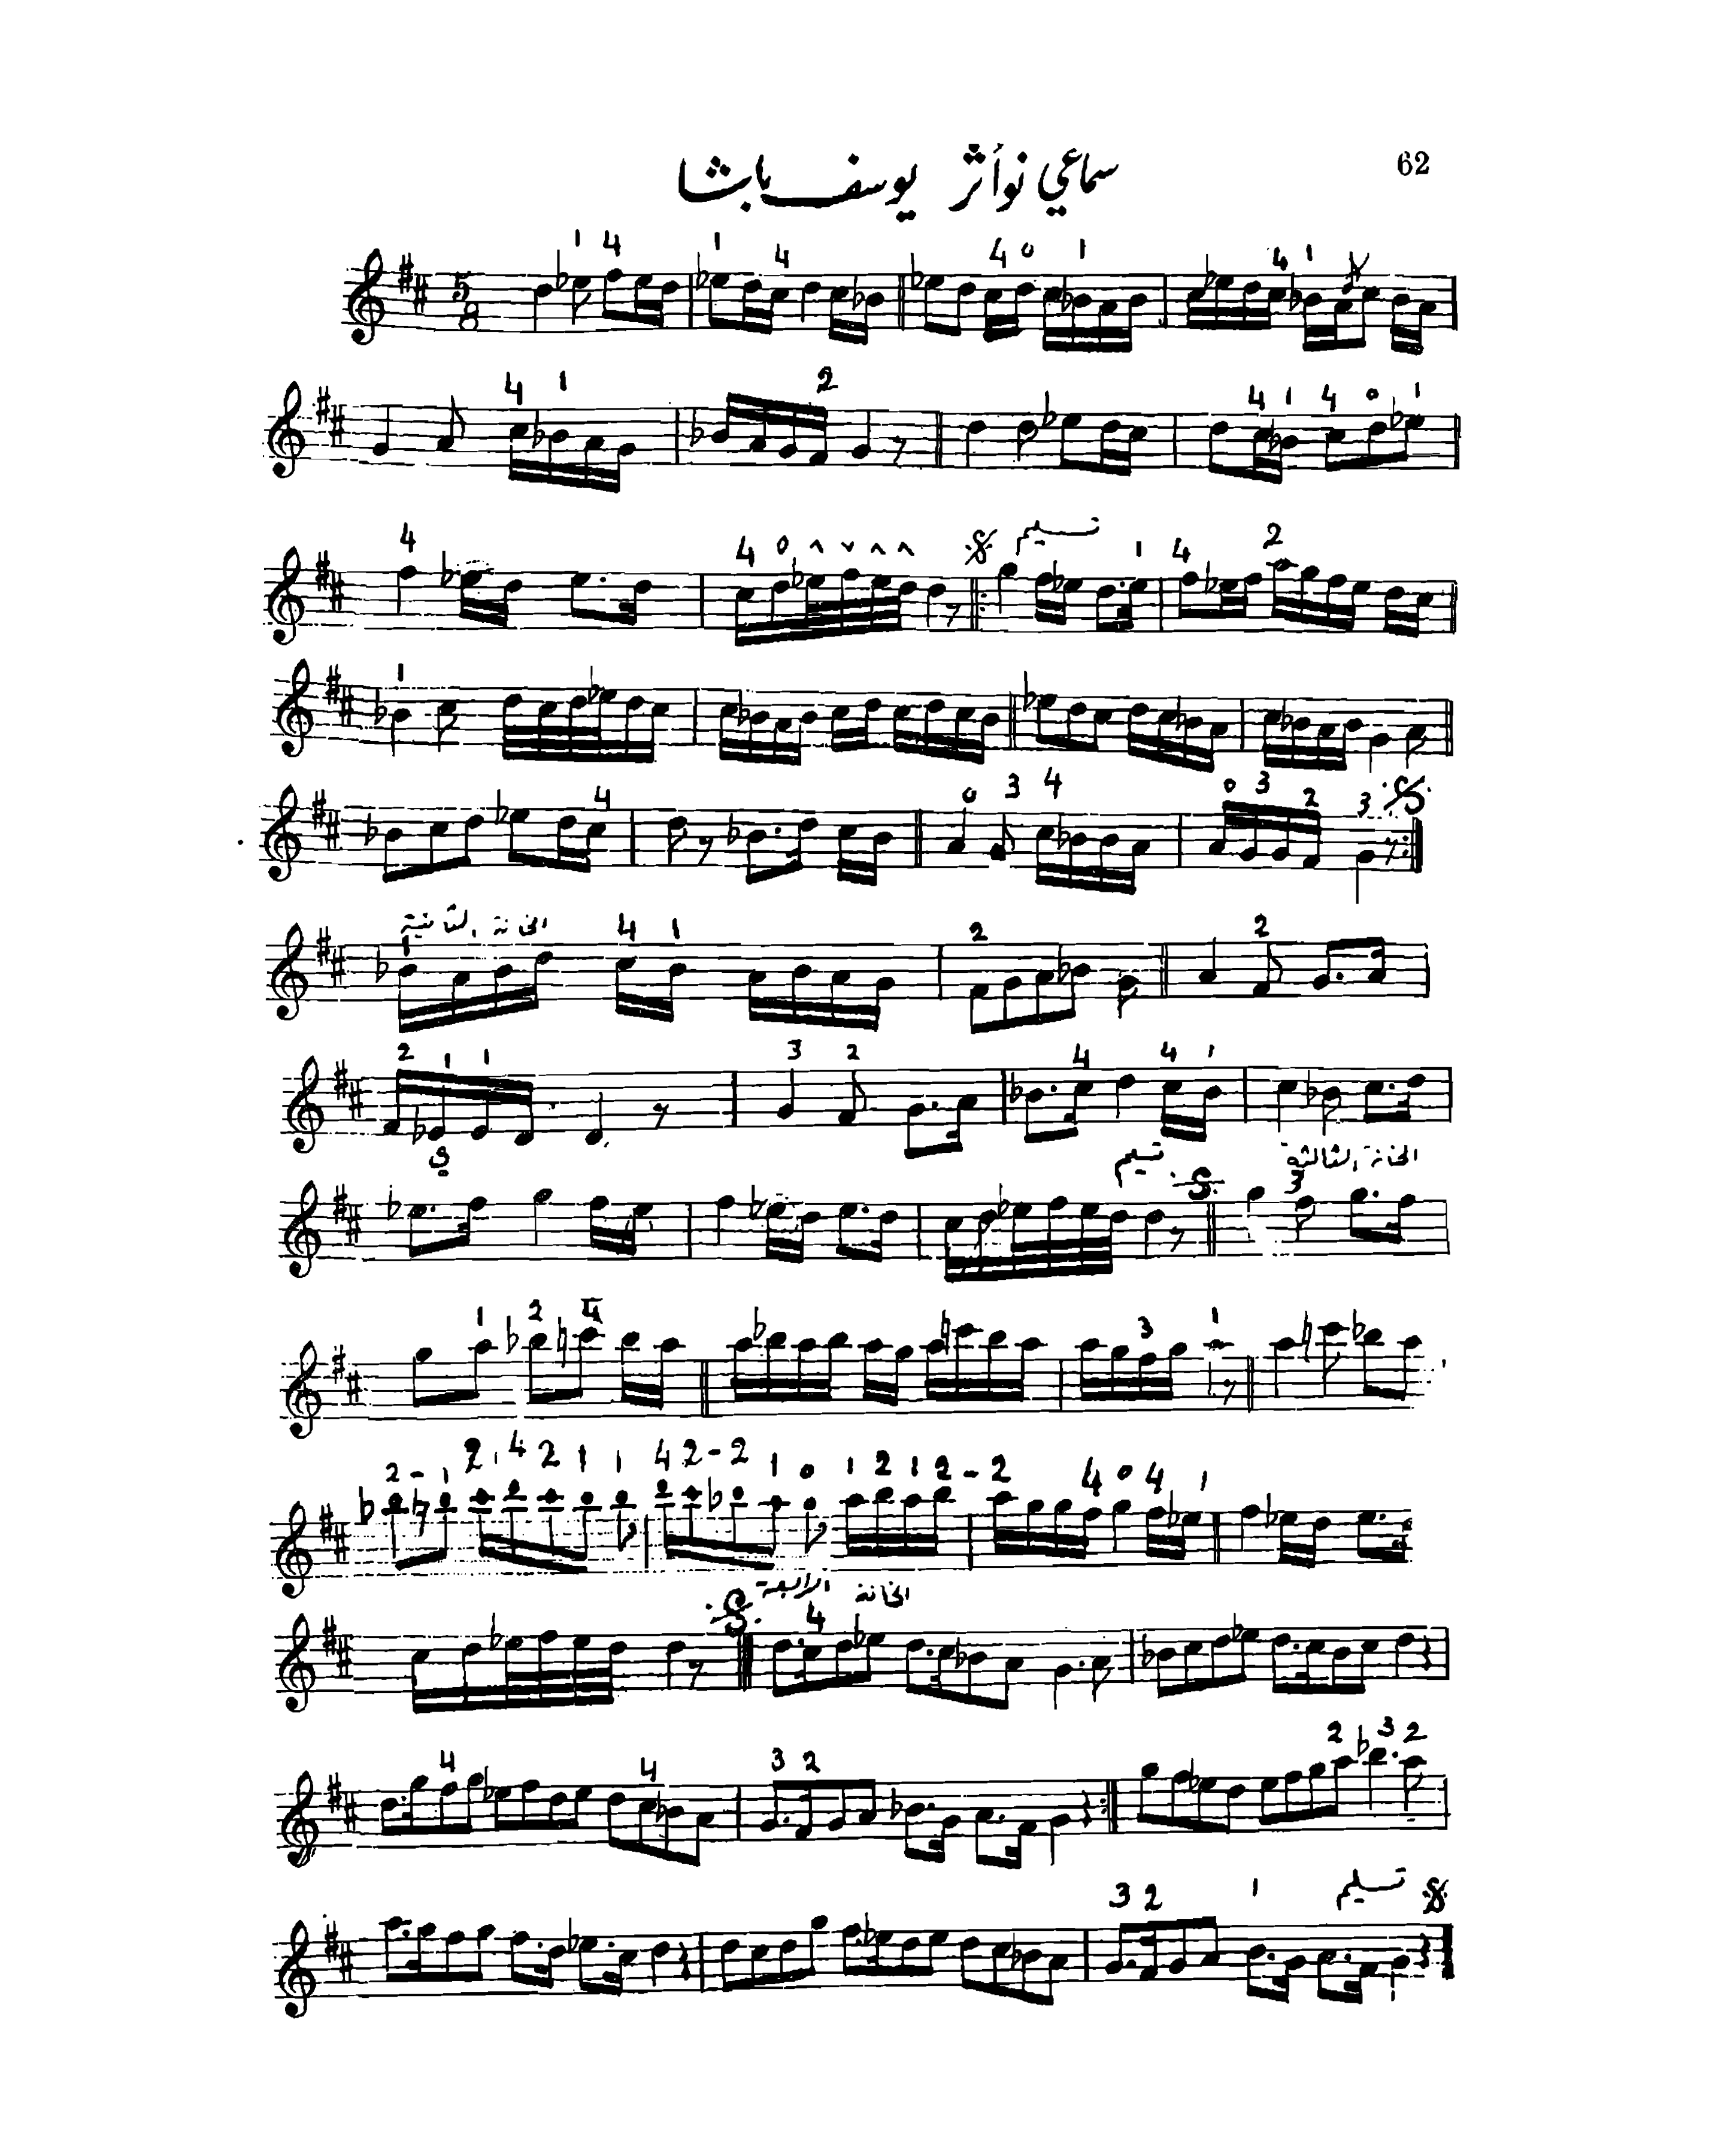 62
سماعي نوأثر يوسف باشا
5
8
تسليم
الخانة الثانية
تسليم
الخانة الثالثة
الخانة الرابعة
تسليم